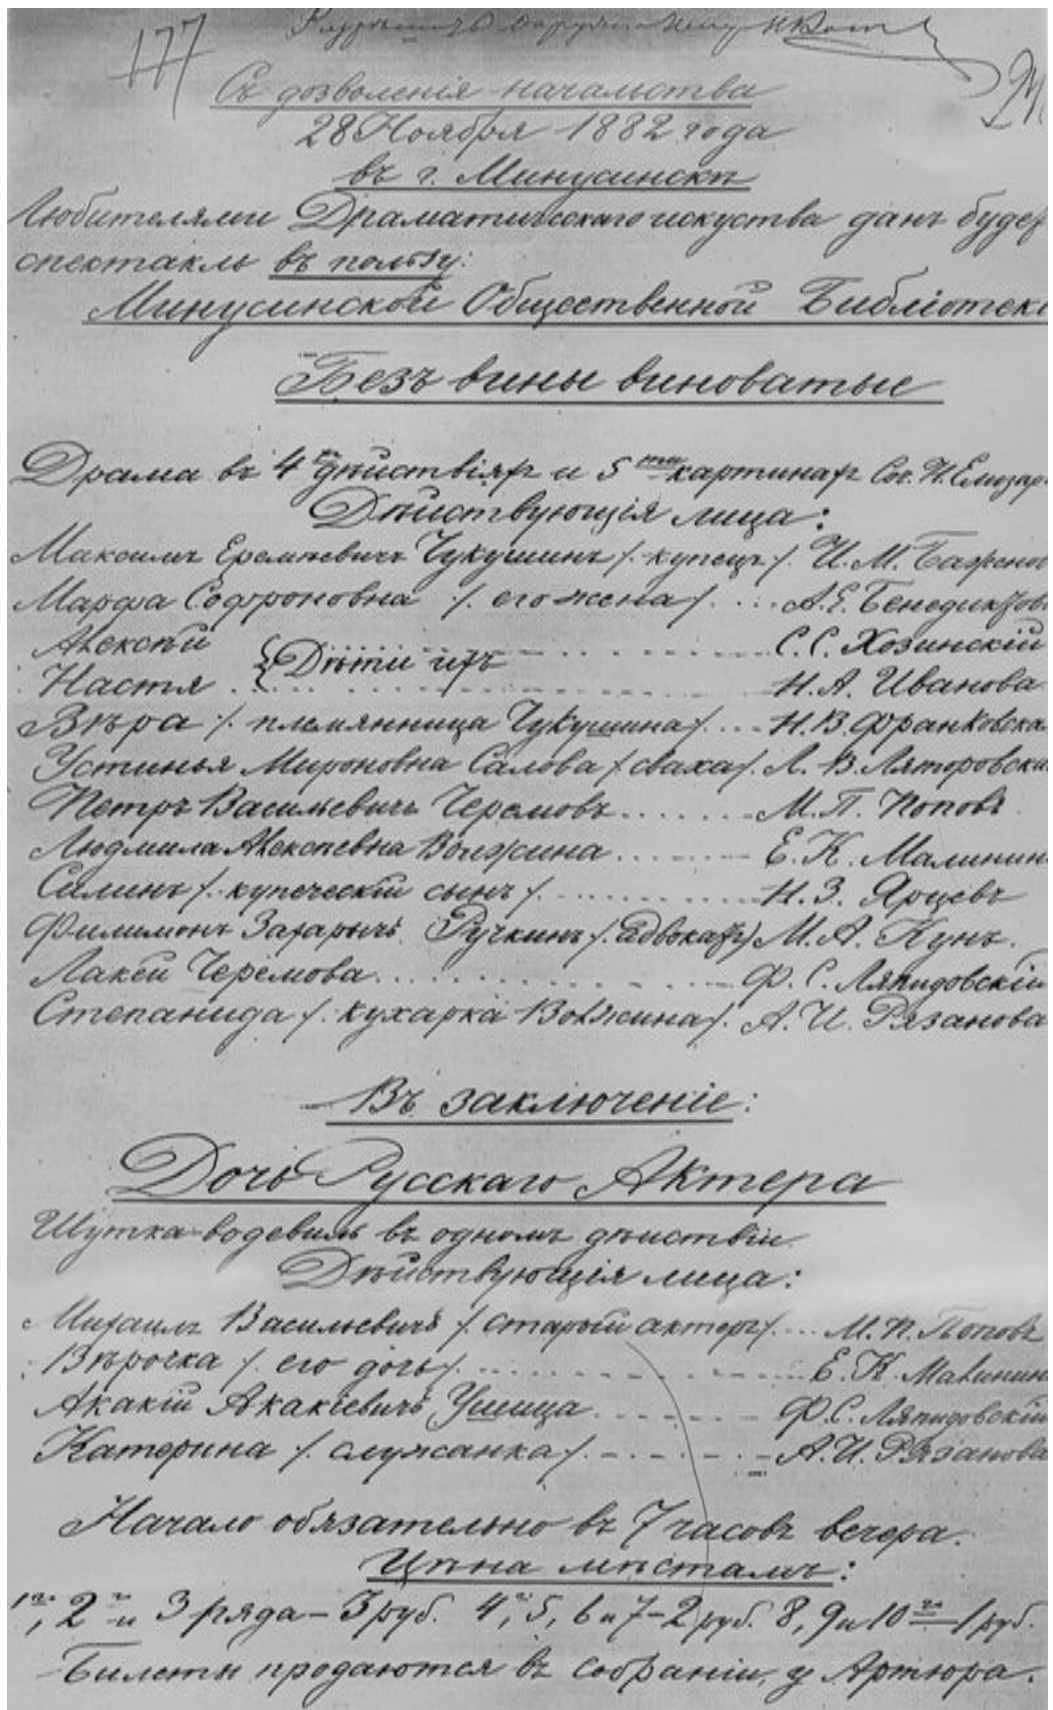 177
Съ дозволенія начальства
28 Ноября 1882 года
въ г. Минусинскѣ
Любителями Драматическаго искуства данъ будет
спектакль въ пользу:
Минусинской Общественной Библіотеки
Безъ вины виноватые
Драма въ 4 дѣйствіяхъ и 5 картинахъ Соч. Н. Елизар.
Дѣйствующія лица:
Максимъ Еремѣевичъ Чукушинъ /. купецъ /. И. М. Баженов
Марфа Софроновна /. его жена /. ... А. Е. Бенедиктов.
Алексѣй ... С. С. Хозинскій
{ Дѣти ихъ
Настя ... Н. А. Иванова
Вѣра /. племянница Чукушина /. ... Н. В. Франковска
Устинья Мироновна Салова /. сваха /. Л. В. Ляторовски
Петръ Васильевичъ Черемовъ ....... М. П. Поповъ
Людмила Алексѣевна Волжина ....... Е. К. Малинин
Силинъ /. купеческій сынъ /. ....... Н. З. Ярцевъ
Филимонъ Захарычъ Ручкинъ /. адвокатъ /. М. А. Кунъ.
Лакей Черемова ....... Ф. С. Ляпидовскій
Степанида /. кухарка Волжина /. А. И. Рязанова
Въ заключеніе:
Дочь Русскаго Актера
Шутка-водевиль въ одномъ дѣйствіи
Дѣйствующія лица:
Михаилъ Васильевичъ /. старый актеръ /. ... М. П. Поповъ
Вѣрочка /. его дочь /. ....... Е. К. Малинин
Акакій Акакіевичъ Ушица ....... Ф. С. Ляпидовскій
Катерина /. служанка /. ....... А. И. Рязанова
Начало обязательно въ 7 часовъ вечера.
Цѣна мѣстамъ:
1го, 2 и 3 ряда – 3 руб. 4, 5, 6 и 7 – 2 руб. 8, 9 и 10 – 1 руб.
Билеты продаются въ собраніи, у Артюра.